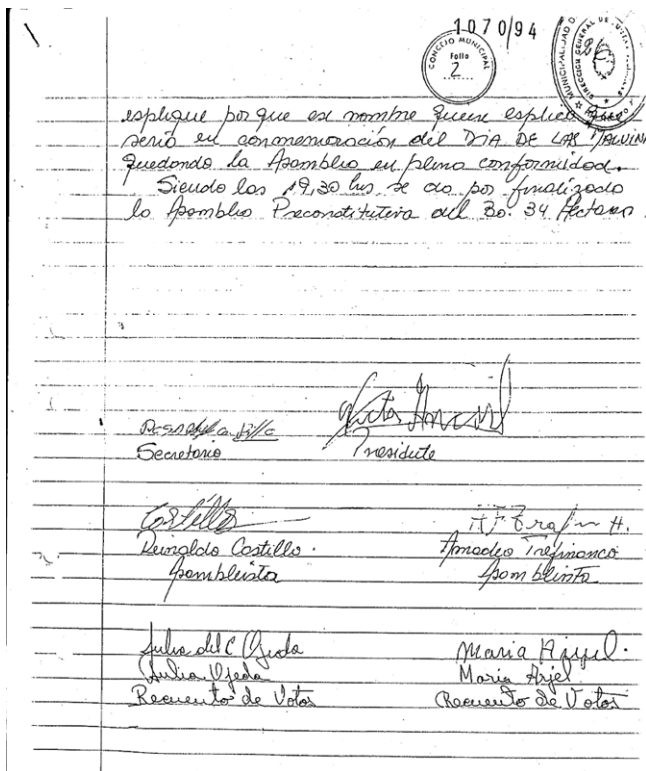 1070/94
CONCEJO MUNICIPAL
Folio
2
MUNICIPALIDAD DE
DIRECCION GENERAL DE
esplique por que ese nombre quien esplico que
seria en conmemoración del DIA DE LAS MALVINAS
quedando la Asamblea en plena conformidad.
Siendo las 19,30 hs. se da por finalizada
la Asamblea Preconstitutiva del Bo. 34 Hectareas.
Secretario
Presidente
Castillo
Reinaldo Castillo.
Asambleista
Amadeo
Asambleista
Julia del C Ojeda
Maria Arjel.
Julia Ojeda
Maria Arjel
Recuento de Votos
Recuento de Votos